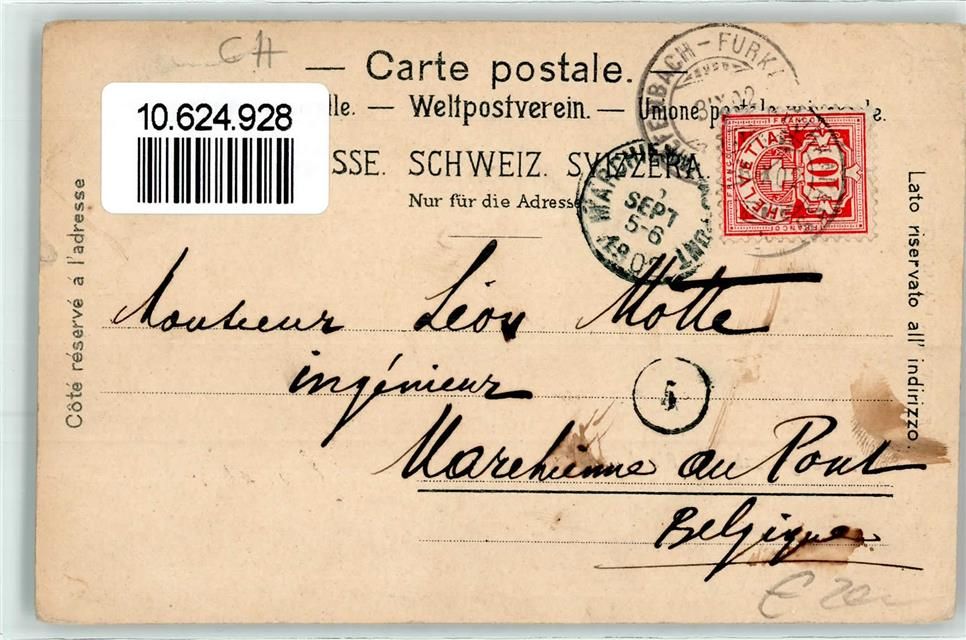 CH
— Carte postale. —
10.624.928
lle. — Weltpostverein. — Unione postale
SSE. SCHWEIZ. SVIZZERA.
Nur für die Adresse
TIEFENBACH-FURKA
MARCHIENNE AU PONT
SEPT
5-6
1902
FRANCO
HELVETIA
10
Côté réservé à l'adresse
Lato riservato all' indirizzo.
Monsieur Léon Motte
ingénieur
5
Marchienne au Pont
Belgique